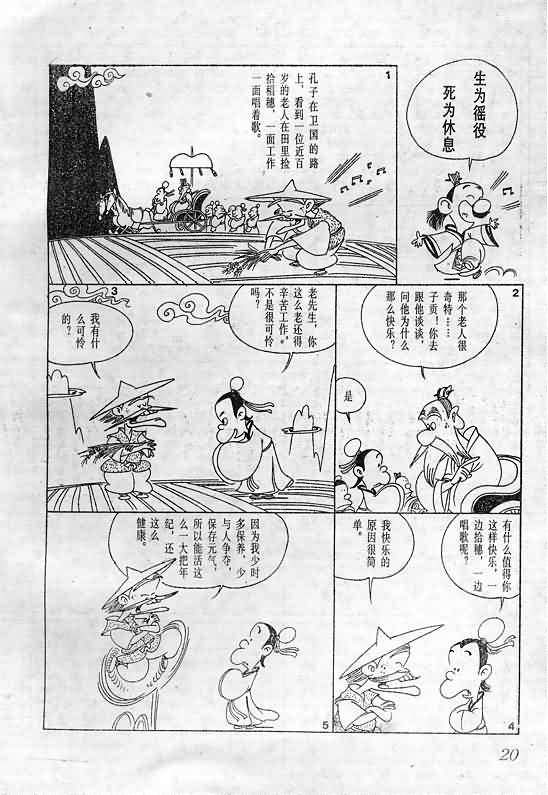 生为徭役
死为休息
1
孔子在卫国的路
上，看到一位近百
岁的老人在田里捡
拾稻穗，一面工作
一面唱着歌。
2
那个老人很
奇特……
子贡！你去
跟他谈谈，
问他为什么
那么快乐？
是
3
老先生，你
这么老还得
辛苦工作。
不是很可怜
吗？
我有什
么可怜
的？
有什么值得你
这样快乐，一
边拾穗，一边
唱歌呢？
我快乐的
原因很简
单。
4
因为我少时
多保养，少
与人争夺，
保存元气，
所以能活这
么一大把年
纪，还
这么
健康。
5
20